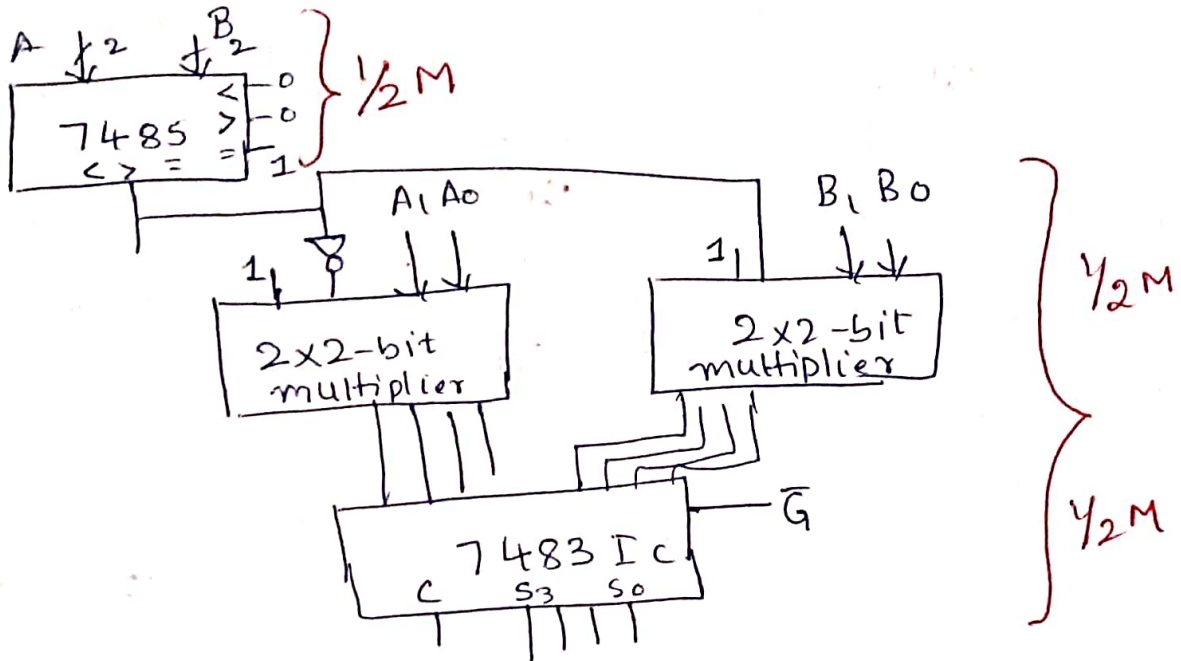 A 2 B 2
< 0
7485 > 0
< > = = 1
1/2 M
A1 A0
B1 B0
1
1
2x2-bit
multiplier
2x2-bit
multiplier
1/2 M
G̅
7483 IC
C S3 S0
1/2 M